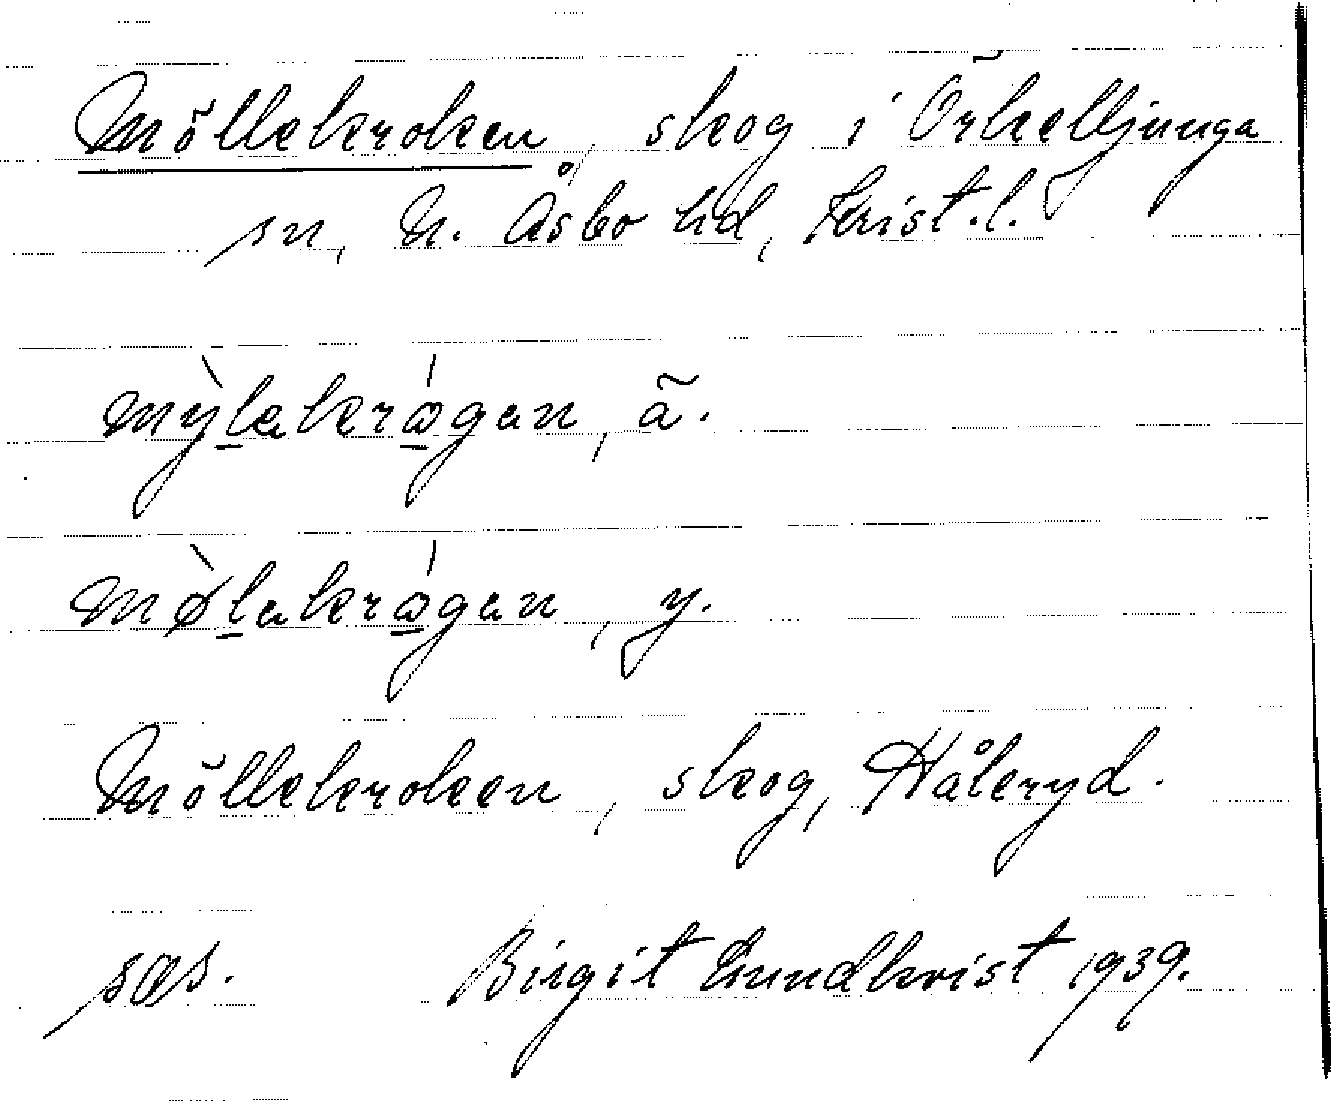 Möllekroken, skog i Örkelljunga
sn, N. Åsbo hd, Krist.l.
mỳlakrógan, ä.
mø̀lakrógan, y.
Möllekroken, skog, Håleryd.
sæs. Birgit Lundkvist 1939.